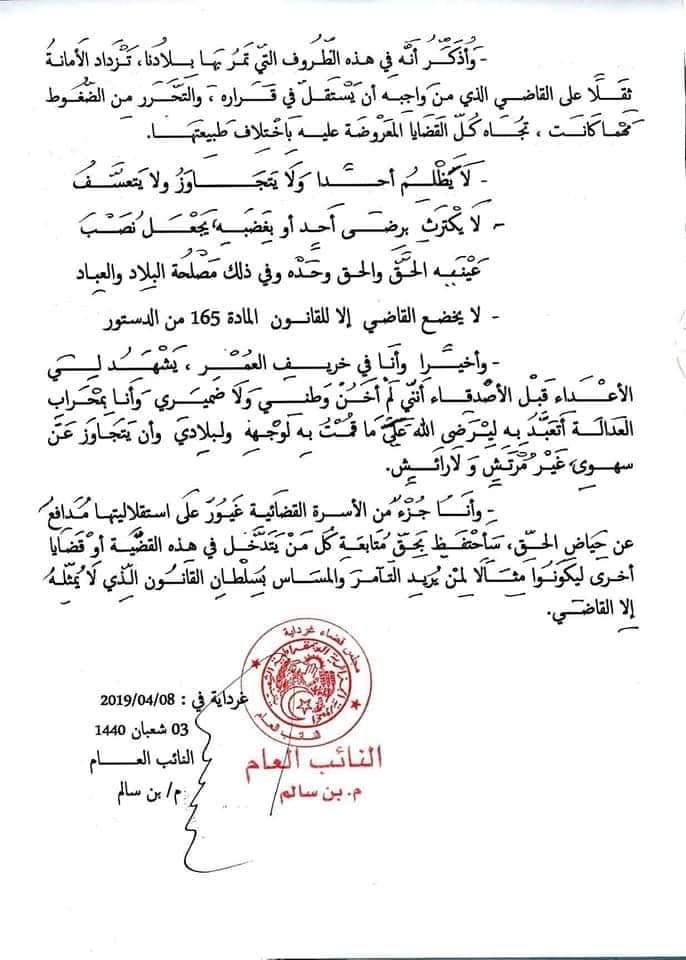 - وَأُذَكِّرُ أنَّه فِي هذه الظُّروف التي تَمرُّ بها بِلادنا، تَزْداد الأمانة
ثقَلًا على القاضي الذي من واجبِه أن يَسْتقلَّ في قَراره ، والتَّحَرر من الضُّغوط
مَهْما كانت ، تجاه كلّ القضايا المعْروضة عليه باختلاف طبيعتها.
- لَا يُظْلم أحدًا وَلَا يتجاوزُ ولا يتعسَّفُ
- لَا يكْترث برِضى أحدٍ أو بغَضبه، يَجْعل نُصْبَ
عَيْنيه الحقَّ والحق وحْده وفي ذلك مَصْلحة البلاد والعباد
- لا يخضع القاضي إلا للقانون المادة 165 من الدستور
- وأخيرًا وأنا في خريفِ العمْر ، يشْهد لي
الأعْداء قبْل الأصْدقاء أنَّني لَمْ أخُنْ وطني وَلَا ضميري وأنا بمحْراب
العدالة أتعبَّد به ليرْضى الله عليَّ مَا قمْتُ به لوجْهِه ولبلادي وأن يتجاوز عنَّ
سهوي، غيْر مُرْتشٍ وَ لَا رائشٍ.
- وأنا جُزْء من الأسرة القضائية غيور على استقلاليتها مُدافعُ
عن حياض الحقِّ، سأحْتفظ بحقّ مُتابعة كلّ منْ يتدَخّل في هذه القضيَّة أو قضايا
أخرى ليكونوا مثالًا لمنْ يُريد التآمر والمساس بسُلطان القانون الَّذي لَا يُمثّلهُ
إلا القاضي.
مجلس قضاء غرداية
النائب العام
غرداية في : 2019/04/08
03 شعبان 1440
النائب العام
م/ بن سالم
النائب العام
م. بن سالم